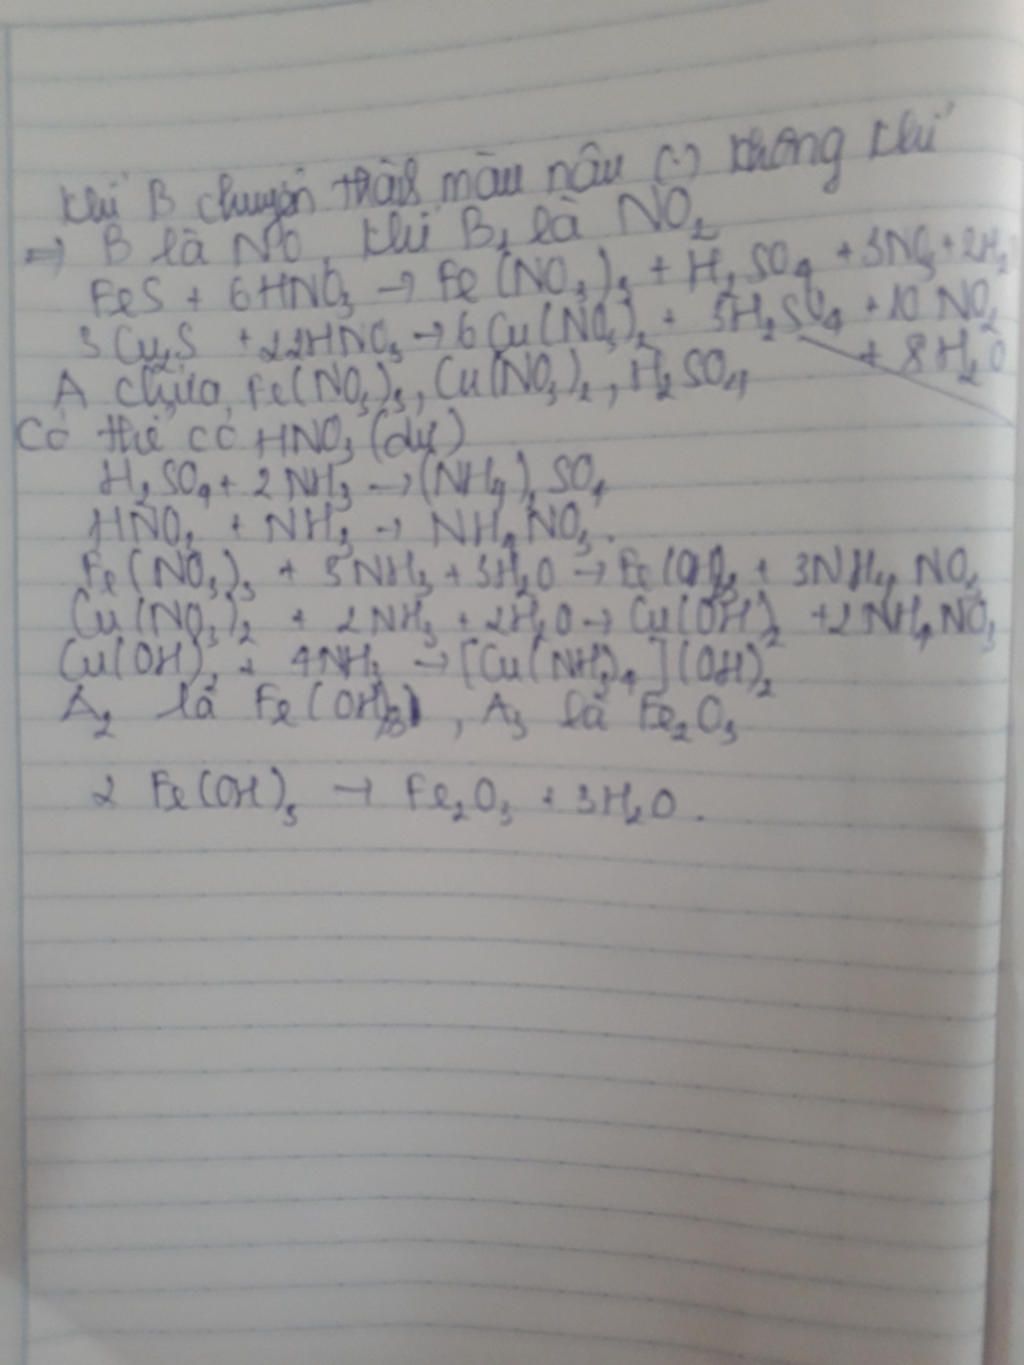 Khí B chuyển thành màu nâu (.) không khí
=> B là NO, khí B₁ là NO₂
FeS + 6HNO₃ → Fe(NO₃)₃ + H₂SO₄ + 3NO + 2H₂
3Cu₂S + 22HNO₃ → 6Cu(NO₃)₂ + 3H₂SO₄ + 10NO₂
+ 8H₂O
A chứa, Fe(NO₃)₃, Cu(NO₃)₂, H₂SO₄
Có thể có HNO₃ (dư)
H₂SO₄ + 2NH₃ → (NH₄)₂SO₄
HNO₃ + NH₃ → NH₄NO₃.
Fe(NO₃)₃ + 3NH₃ + 3H₂O → Fe(OH)₃ + 3NH₄NO₃
Cu(NO₃)₂ + 2NH₃ + 2H₂O → Cu(OH)₂ + 2NH₄NO₃
Cu(OH)₂ + 4NH₃ → [Cu(NH₃)₄](OH)₂
A₂ là Fe(OH)₃, A₃ là Fe₂O₃
2Fe(OH)₃ → Fe₂O₃ + 3H₂O.